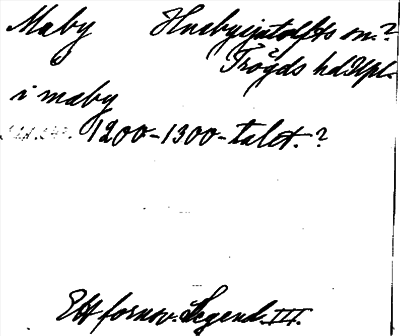 Maby Husbysjutolfts sn.?
Trögds hd. Upl.
i maby
1200-1300-talet.?
Ett fornsv. Legend. III.